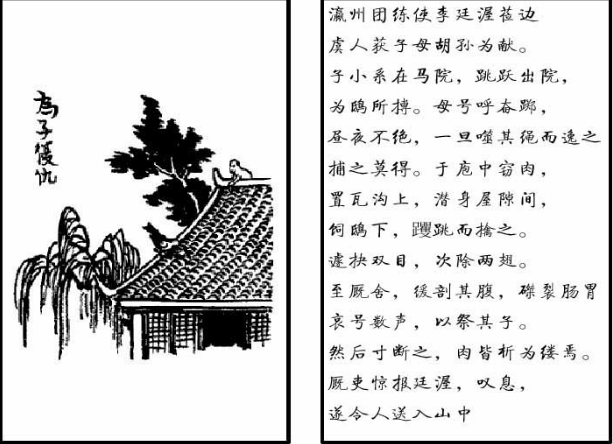 為子復仇
瀛州团练使李廷渥莅边
虞人获子母胡孙为献。
子小系在马院，跳跃出院，
为鸱所搏。母号呼奋踯，
昼夜不绝，一旦啮其绳而逸之
捕之莫得。于庖中窃肉，
置瓦沟上，潜身屋隙间，
伺鸱下，躩跳而擒之。
遽抉双目，次除两翅。
至厩舍，缓剖其腹，磔裂肠胃
哀号数声，以祭其子。
然后寸断之，肉皆析为缕焉。
厩吏惊报廷渥，叹息，
遂令人送入山中